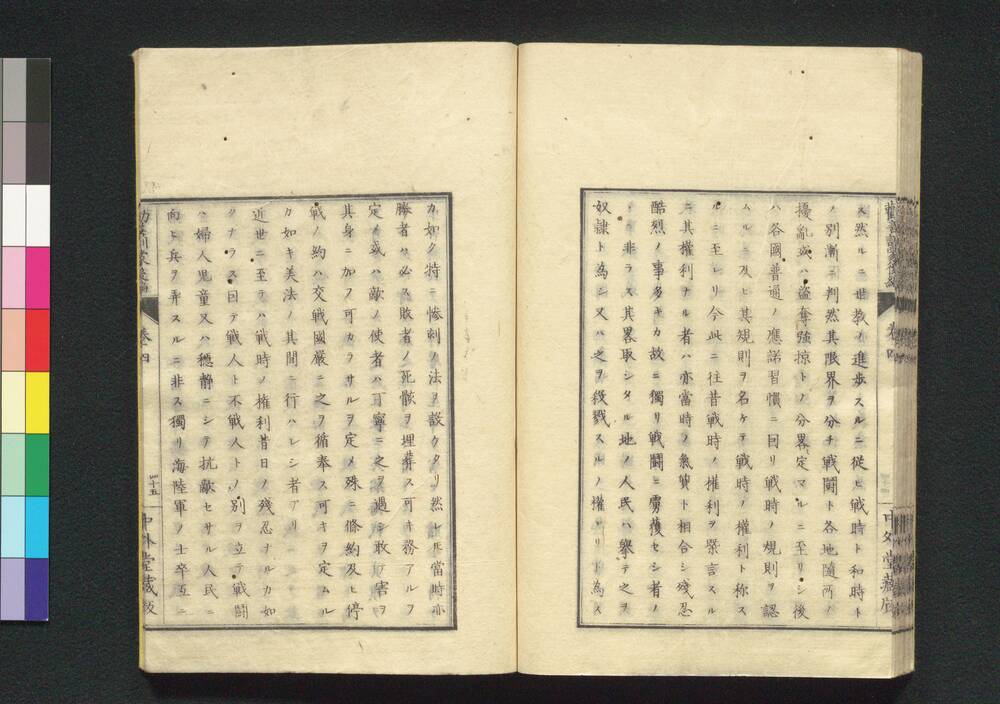 ス然ルニ世敎ノ進歩スルニ従ヒ戦時ト和時ト
ノ別漸ニ判然其限界ヲ分チ戦鬪ト各地随所ノ
擾亂或ハ盗奪強掠トノ分畧定マルニ至リシ後
ハ各國普通ノ應諾習慣ニ因リ戦時ノ規則ヲ認
ムルニ及ヒ其規則ヲ名ケテ戦時ノ權利ト称ス
ルニ至レリ今此ニ往昔戦時ノ權利ヲ槩言スル
ニ其權利ナル者ハ亦當時ノ氣質ト相合シ殘忍
酷烈ノ事多キカ故ニ獨リ戦鬪ニ虜獲セシ者ノ
ミニ非ラス其畧取シタル地ノ人民ハ擧テ之ヲ
奴隷ト為シ又ハ之ヲ殺戮スルノ權リト為ス
卷四
中外堂藏版
カ如ク特ニ惨刻ノ法ヲ設ケタリ然レ𪜈當時亦
勝者ハ必ス敗者ノ死骸ヲ埋葬ス可キ務アルヲ
定メ或ハ敵ノ使者ハ丁寧ニ之ヲ遇シ敢テ害ヲ
其身ニ加フ可カラサルヲ定メ殊ニ條約及ヒ停
戦ノ約ハ交戦國嚴ニ之ヲ循奉ス可キヲ定ムル
カ如キ美法ノ其間ニ行ハレシ者アリ
近世ニ至テハ戦時ノ権利昔日ノ殘忍ナルカ如
クナラス因テ戦人ト不戦人トノ別ヲ立テ戦鬪
ハ婦人児童又ハ穏静ニシテ抗敵セサル人民ニ
向ヒ兵ヲ弄スルニ非ス獨リ海陸軍ノ士卒互ニ
卷四
四十五
中外堂藏版